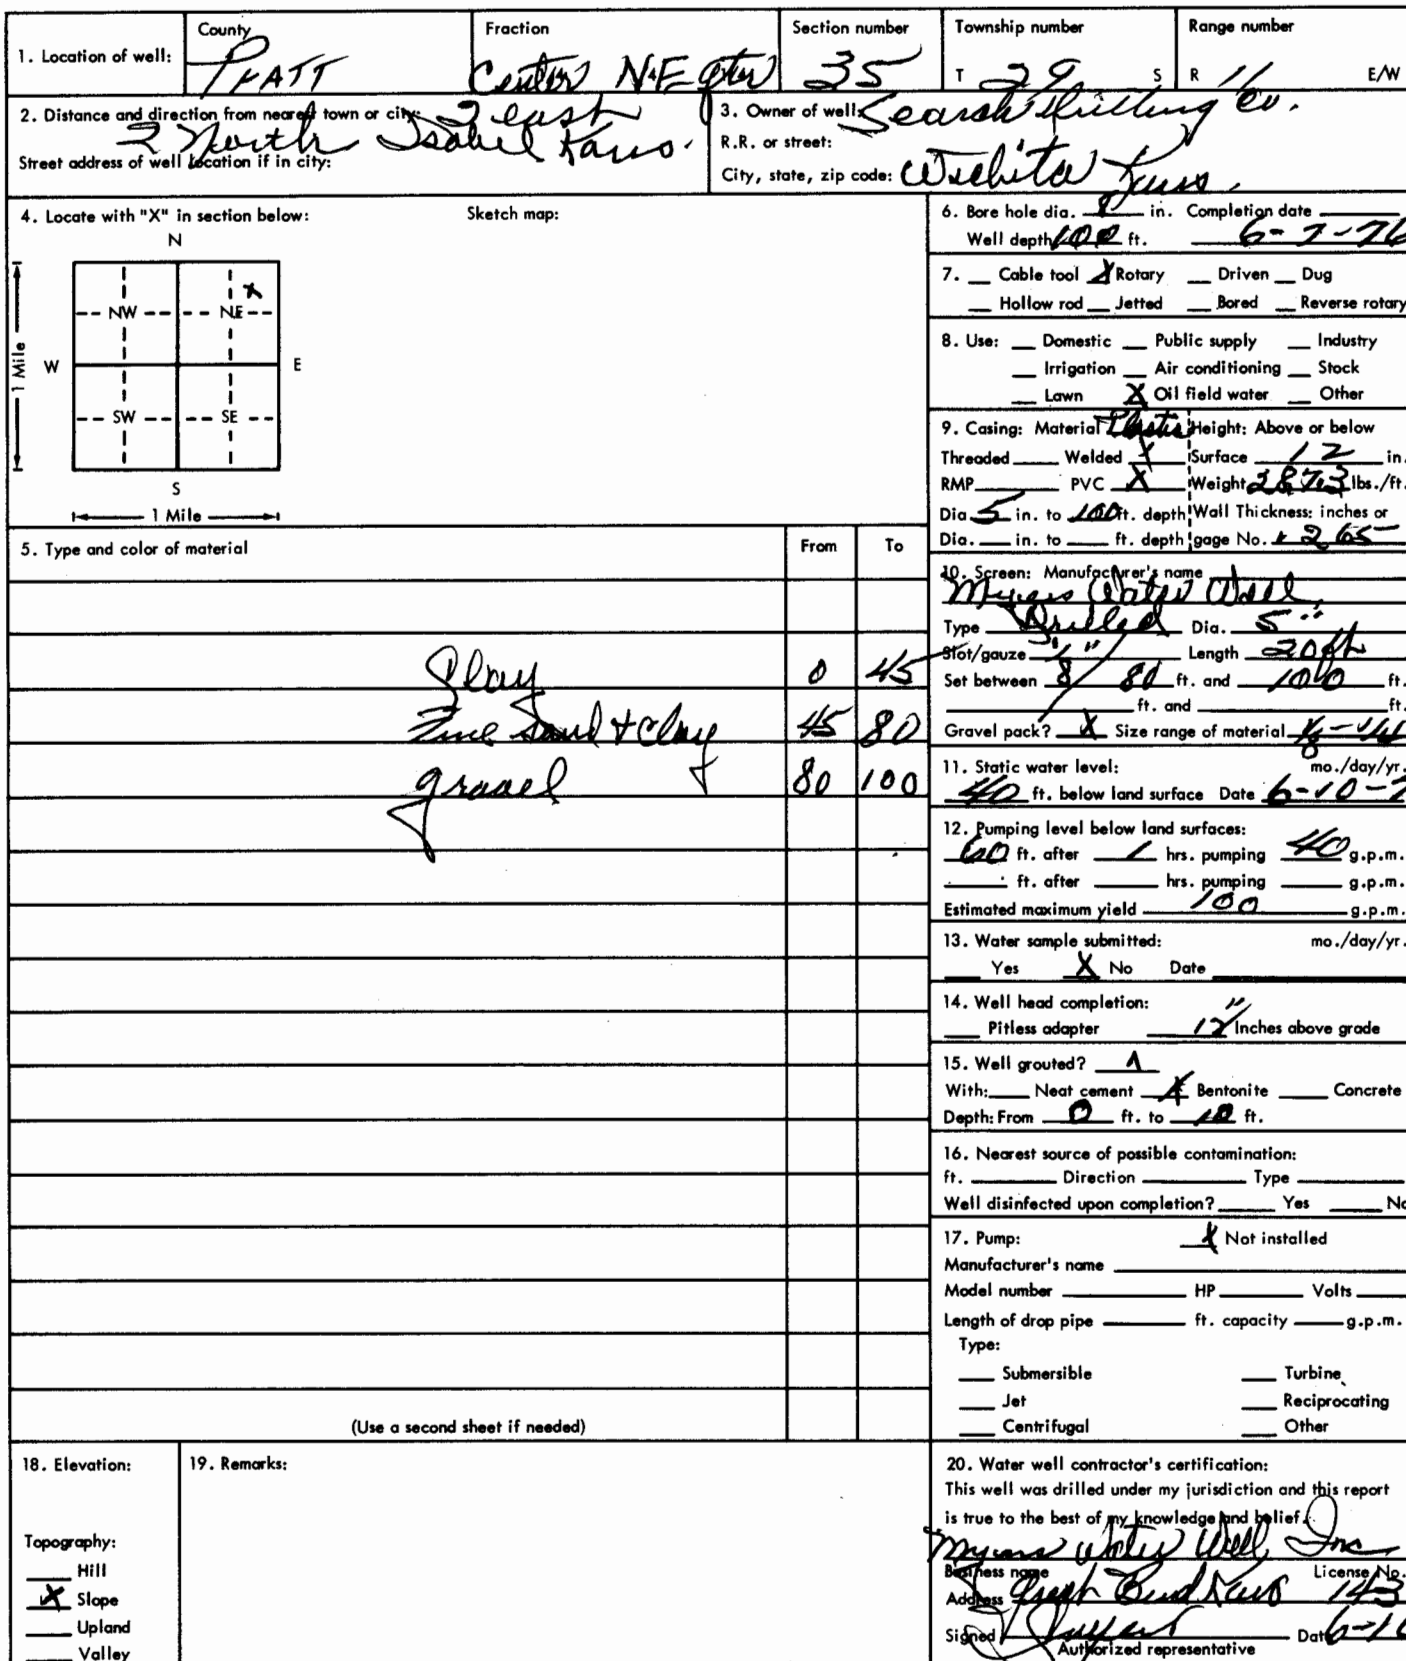 County Fraction Section number Township number Range number
1. Location of well: Pratt Center N.E. qtr 35 T 29 S R 11 E/W
2. Distance and direction from nearest town or city: 2 east
2 North Isabel Kans.
Street address of well location if in city:
3. Owner of well: Search Drilling Co.
R.R. or street:
City, state, zip code: Wichita Kans.
4. Locate with "X" in section below: Sketch map:
N
X
NW NE
1 Mile W E
SW SE
S
1 Mile
5. Type and color of material From To
Clay 0 45
Fine Sand & Clay 45 80
gravel 80 100
(Use a second sheet if needed)
6. Bore hole dia. 8 in. Completion date
Well depth 100 ft. 6-7-76
7. Cable tool X Rotary Driven Dug
Hollow rod Jetted Bored Reverse rotary
8. Use: Domestic Public supply Industry
Irrigation Air conditioning Stock
Lawn X Oil field water Other
9. Casing: Material Plastic Height: Above or below
Threaded Welded X Surface 12 in.
RMP PVC X Weight 2.873 lbs./ft.
Dia. 5 in. to 100 ft. depth Wall Thickness: inches or
Dia. in. to ft. depth gage No. .265
10. Screen: Manufacturer's name
Myers Water Well
Type Drilled Dia. 5"
Slot/gauze 1/8" Length 20 ft
Set between 80 ft. and 100 ft.
ft. and ft.
Gravel pack? X Size range of material 1/8-1/4
11. Static water level: mo./day/yr.
40 ft. below land surface Date 6-10-7
12. Pumping level below land surfaces:
60 ft. after 1 hrs. pumping 40 g.p.m.
ft. after hrs. pumping g.p.m.
Estimated maximum yield 100 g.p.m.
13. Water sample submitted: mo./day/yr.
Yes X No Date
14. Well head completion:
Pitless adapter 12" Inches above grade
15. Well grouted? X
With: Neat cement X Bentonite Concrete
Depth: From 0 ft. to 10 ft.
16. Nearest source of possible contamination:
ft. Direction Type
Well disinfected upon completion? Yes No
17. Pump: X Not installed
Manufacturer's name
Model number HP Volts
Length of drop pipe ft. capacity g.p.m.
Type:
Submersible Turbine
Jet Reciprocating
Centrifugal Other
18. Elevation:
Topography:
Hill
X Slope
Upland
Valley
19. Remarks:
20. Water well contractor's certification:
This well was drilled under my jurisdiction and this report
is true to the best of my knowledge and belief.
Myers Water Well, Inc
Business name License No.
Address Great Bend Kans 143
Signed Date 6-10
Authorized representative